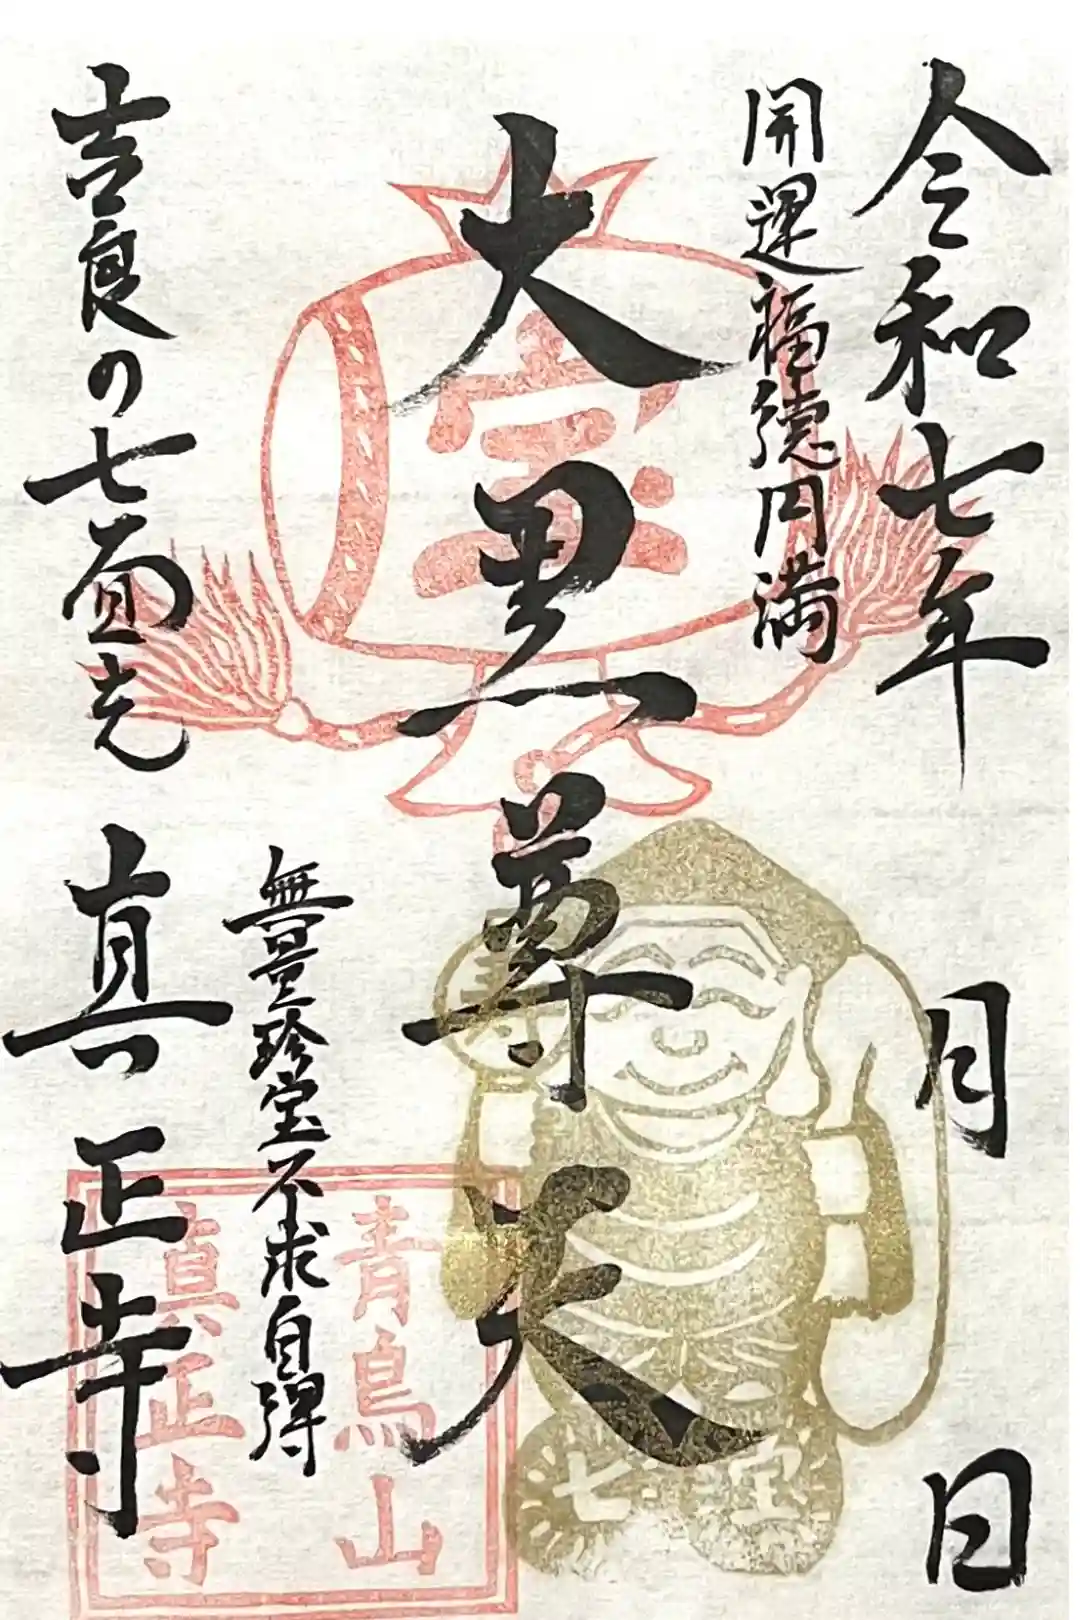 令和七年 月 日
開運福徳円満
大黒尊天
宝
無量珍宝不求自得
吉良の七面光
真正寺
青鳥山
真正寺
七宝